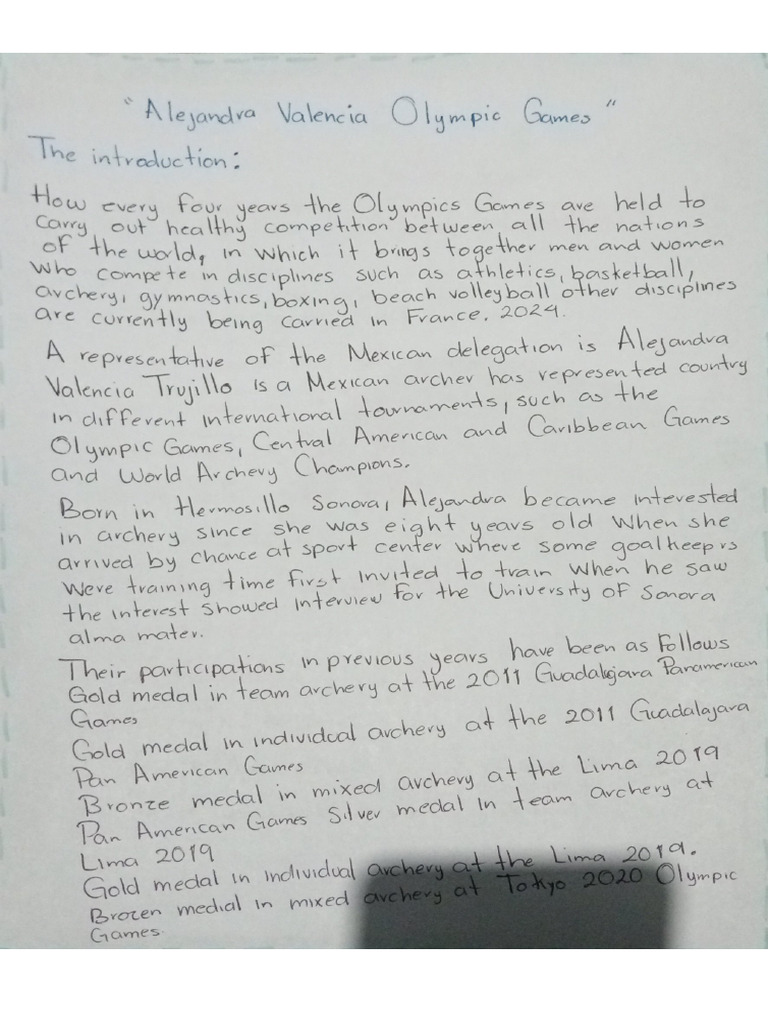 "Alejandra Valencia Olympic Games"
The introduction:
How every four years the Olympics Games are held to
carry out healthy competition between all the nations
of the world, in which it brings together men and women
who compete in disciplines such as athletics, basketball,
archery, gymnastics, boxing, beach volleyball other disciplines
are currently being carried in France, 2024.
A representative of the Mexican delegation is Alejandra
Valencia Trujillo is a Mexican archer has represented country
in different international tournaments, such as the
Olympic Games, Central American and Caribbean Games
and World Archery Champions.
Born in Hermosillo Sonora, Alejandra became interested
in archery since she was eight years old when she
arrived by chance at sport center where some goalkeeprs
were training time first invited to train when he saw
the interest showed interview for the University of Sonora
alma mater.
Their participations in previous years have been as follows
Gold medal in team archery at the 2011 Guadalajara Panamerican
Games
Gold medal in individual archery at the 2011 Guadalajara
Pan American Games
Bronze medal in mixed archery at the Lima 2019
Pan American Games Silver medal in team archery at
Lima 2019
Gold medal in individual archery at the Lima 2019.
Brozen medial in mixed archery at Tokyo 2020 Olympic
Games.